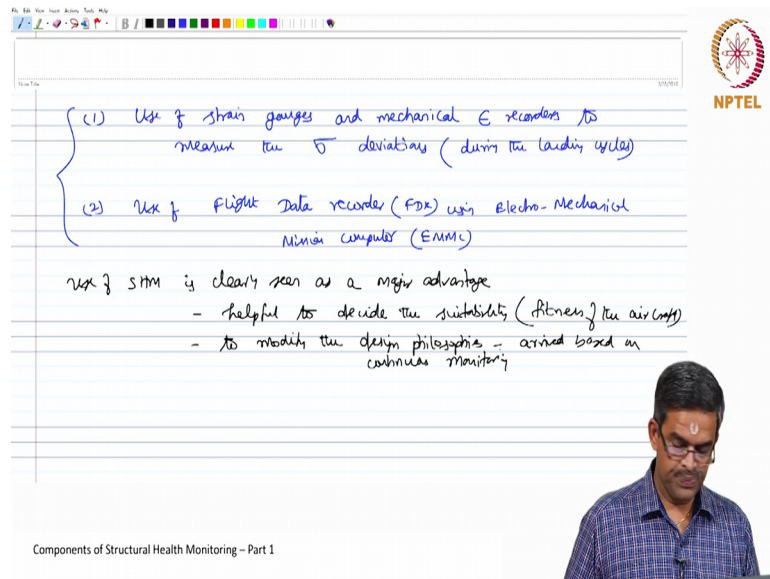 File Edit View Insert Actions Tools Help
Note Title
NPTEL
(1) Use of strain gauges and mechanical ϵ recorders to
measure the σ deviations (during the landing cycles)
(2) Use of Flight Data recorder (FDR) using Electro-Mechanical
Minior computer (EMMC)
Use of SHM is clearly seen as a major advantage
- helpful to decide the suitability (fitness of the aircraft)
- to modify the design philosophies - arrived based on
continuous monitoring
Components of Structural Health Monitoring – Part 1